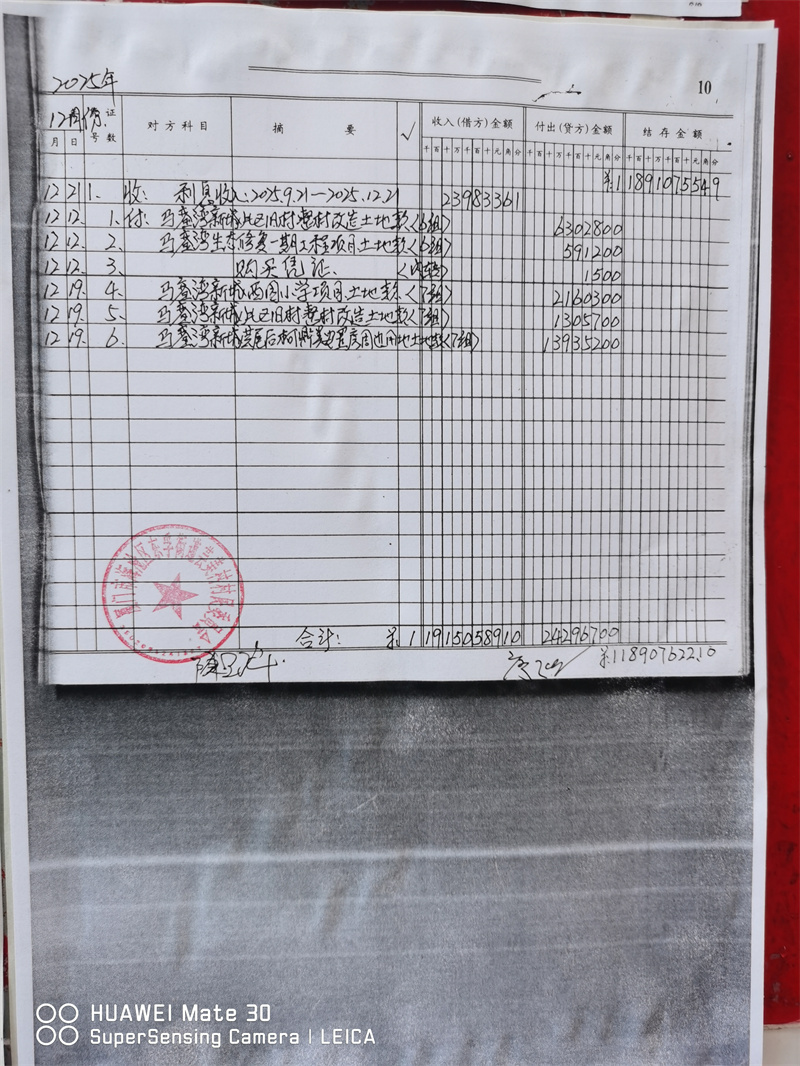 2025年
10
12月份
证
月 日 号数 对方科目 摘要 √ 收入(借方)金额 付出(贷方)金额 结存金额
千百十万千百十元角分 千百十万千百十元角分 千百十万千百十元角分
¥:11891075549
12 21 1. 收: 利息收入:2025.9.21—2025.12.21 23983361
12 12. 1. 付: 马銮湾新城片区旧村整村改造土地款<6组> 6302800
12 12. 2. 马銮湾生态修复一期工程项目土地款<6组> 591200
12 12. 3. 购买凭证. 1500
12 19. 4. 马銮湾新城西园小学项目土地款<7组> 2160300
12 19. 5. 马銮湾新城片区旧村整村改造土地款<7组> 1305700
12 19. 6. 马銮湾新城 后柯 周边用地土地款<7组> 13935200
合计: ¥:11915058910 24296700
¥:11890762210
HUAWEI Mate 30
SuperSensing Camera | LEICA